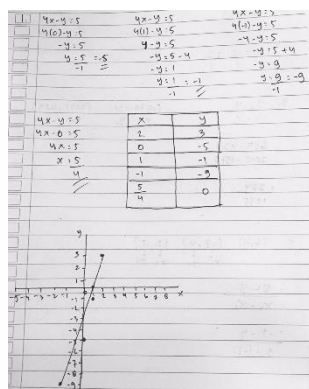 1
4x-y=5
4(0)-y=5
-y=5
y=5/-1=-5
4x-y=5
4(1)-y=5
4-y=5
-y=5-4
-y=1
y=1/-1=-1
4x-y=5
4(-1)-y=5
-4-y=5
-y=5+4
-y=9
y=9/-1=-9
4x-y=5
4x-0=5
4x=5
x=5/4
x y
2 3
0 -5
1 -1
-1 -9
5/4 0
y
3
2
1
-5 -4 -3 -2 -1 1 2 3 4 5 6 7 8 x
-7
-8
-9